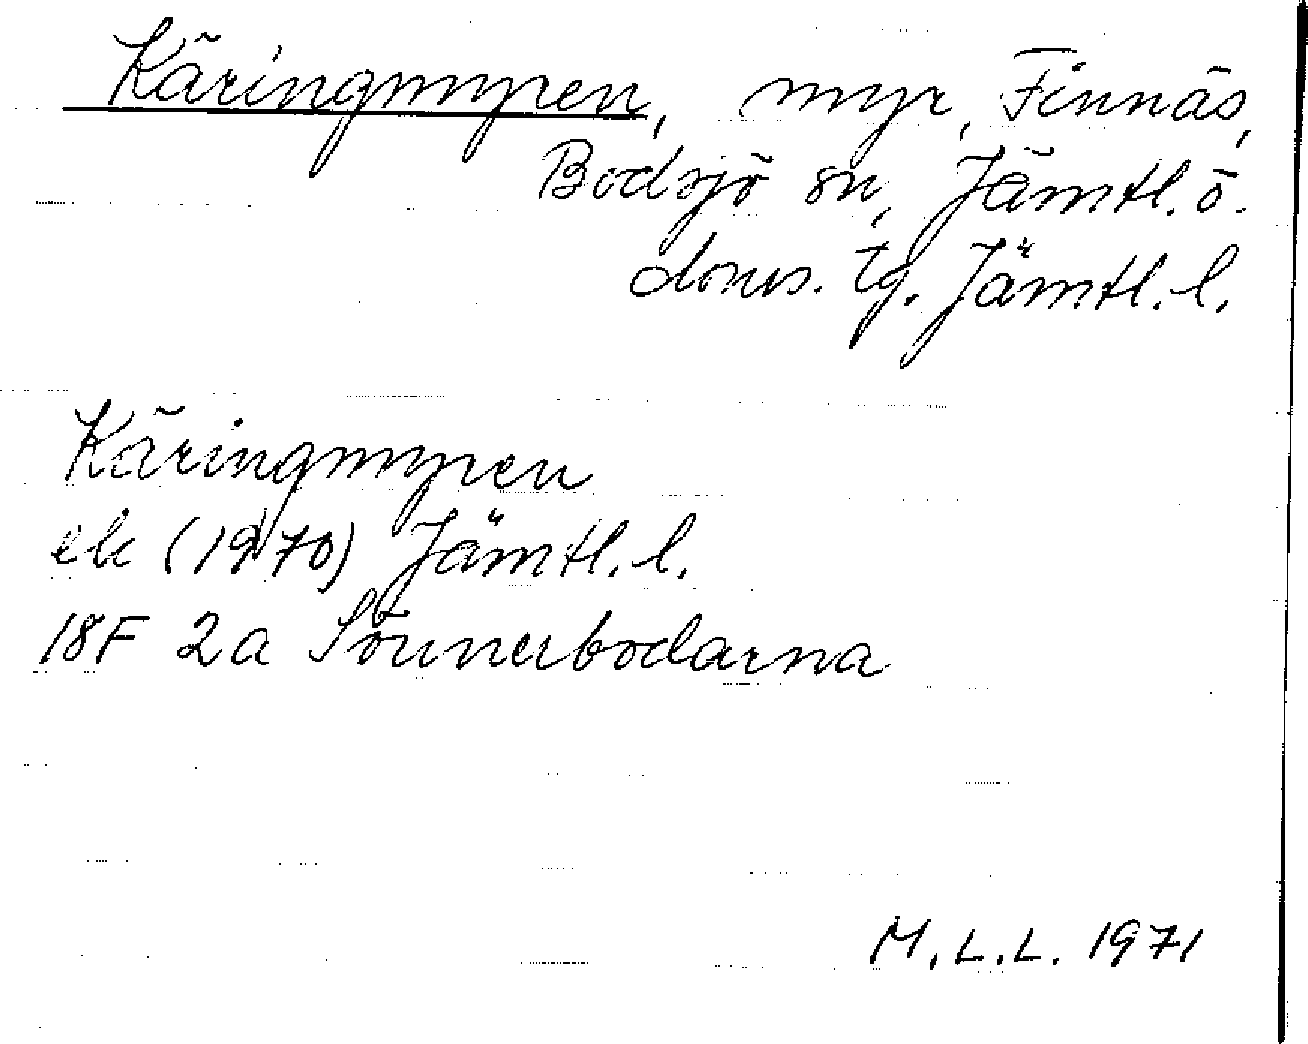 Käringmyren, myr, Finnäs,
Bodsjö sn, Jämtl. ö.
doms. tg. Jämtl. l.
Käringmyren
ek (1970) Jämtl. l.
18F 2a Sönnerbodarna
M. L. L. 1971